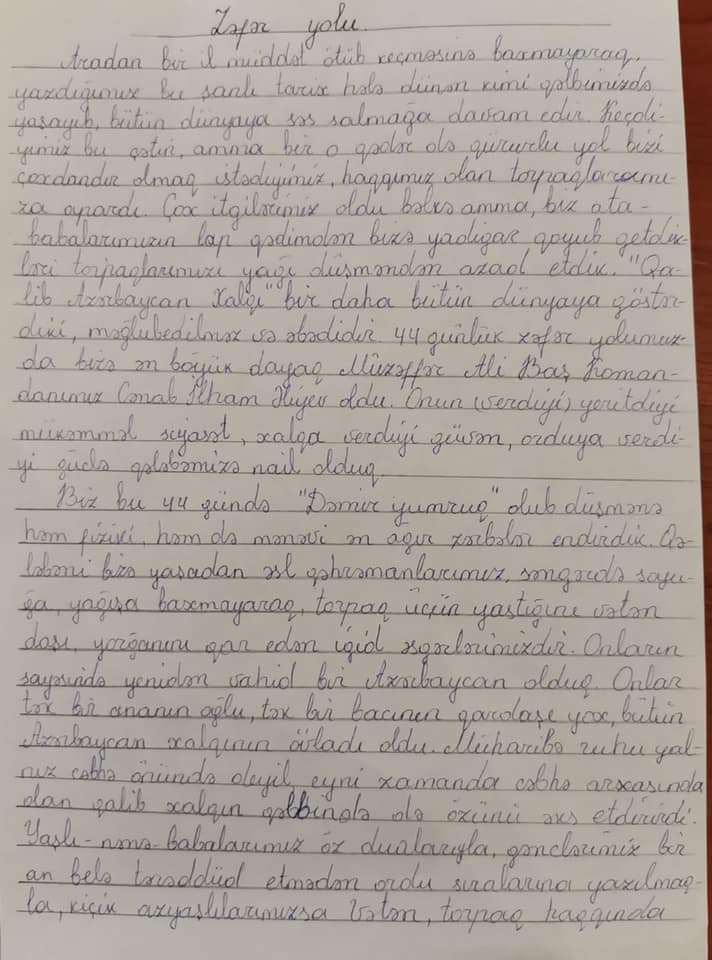 Zəfər yolu.
Aradan bir il müddət ötüb keçməsinə baxmayaraq,
yazdığımız bu şanlı tarix hələ dünən kimi qəlbimizdə
yaşayıb, bütün dünyaya səs salmağa davam edir. Keçdi-
yimiz bu çətin, amma bir o qədər də qürurlu yol bizi
çoxdandır olmaq istədiyimiz, haqqımız olan torpaqlarımı-
za apardı. Çox itgilərimiz oldu bəlkə amma, biz ata-
babalarımızın lap qədimdən bizə yadigar qoyub getdik-
ləri torpaqlarımızı yağı düşməndən azad etdik. "Qa-
lib Azərbaycan Xalqı" bir daha bütün dünyaya göstər-
diki, məğlubedilməz və əbədidir. 44 günlük zəfər yolumuz-
da bizə ən böyük dayaq Müzəffər Ali Baş Koman-
danımız Cənab İlham Əliyev oldu. Onun (verdiyi) yeritdiyi
mükəmməl siyasət, xalqa verdiyi güvən, orduya verdi-
yi güclə qələbəmizə nail olduq.
Biz bu 44 gündə "Dəmir yumruq" olub düşmənə
həm fiziki, həm də mənəvi ən ağır zərbələr endirdik. Qə-
ləbəni bizə yaşadan əsl qəhrəmanlarımız, səngərdə soyu-
ğa, yağışa baxmayaraq, torpaq üçün yastığını vətən
daşı, yorğanını qar edən igid əsgərlərimizdir. Onların
sayəsində yenidən vahid bir Azərbaycan olduq. Onlar
tək bir ananın oğlu, tək bir bacının qardaşı yox, bütün
Azərbaycan xalqının övladı oldu. Müharibə ruhu yal-
nız cəbhə önündə deyil, eyni zamanda cəbhə arxasında
dan qalib xalqın qəlbində də özünü əks etdirirdi.
Yaşlı-nənə babalarımız öz dualarıyla, gənclərimiz bir
an belə tərəddüd etmədən ordu sıralarına yazılmaq-
la, kiçik azyaşlılarımızsa Vətən, torpaq haqqında